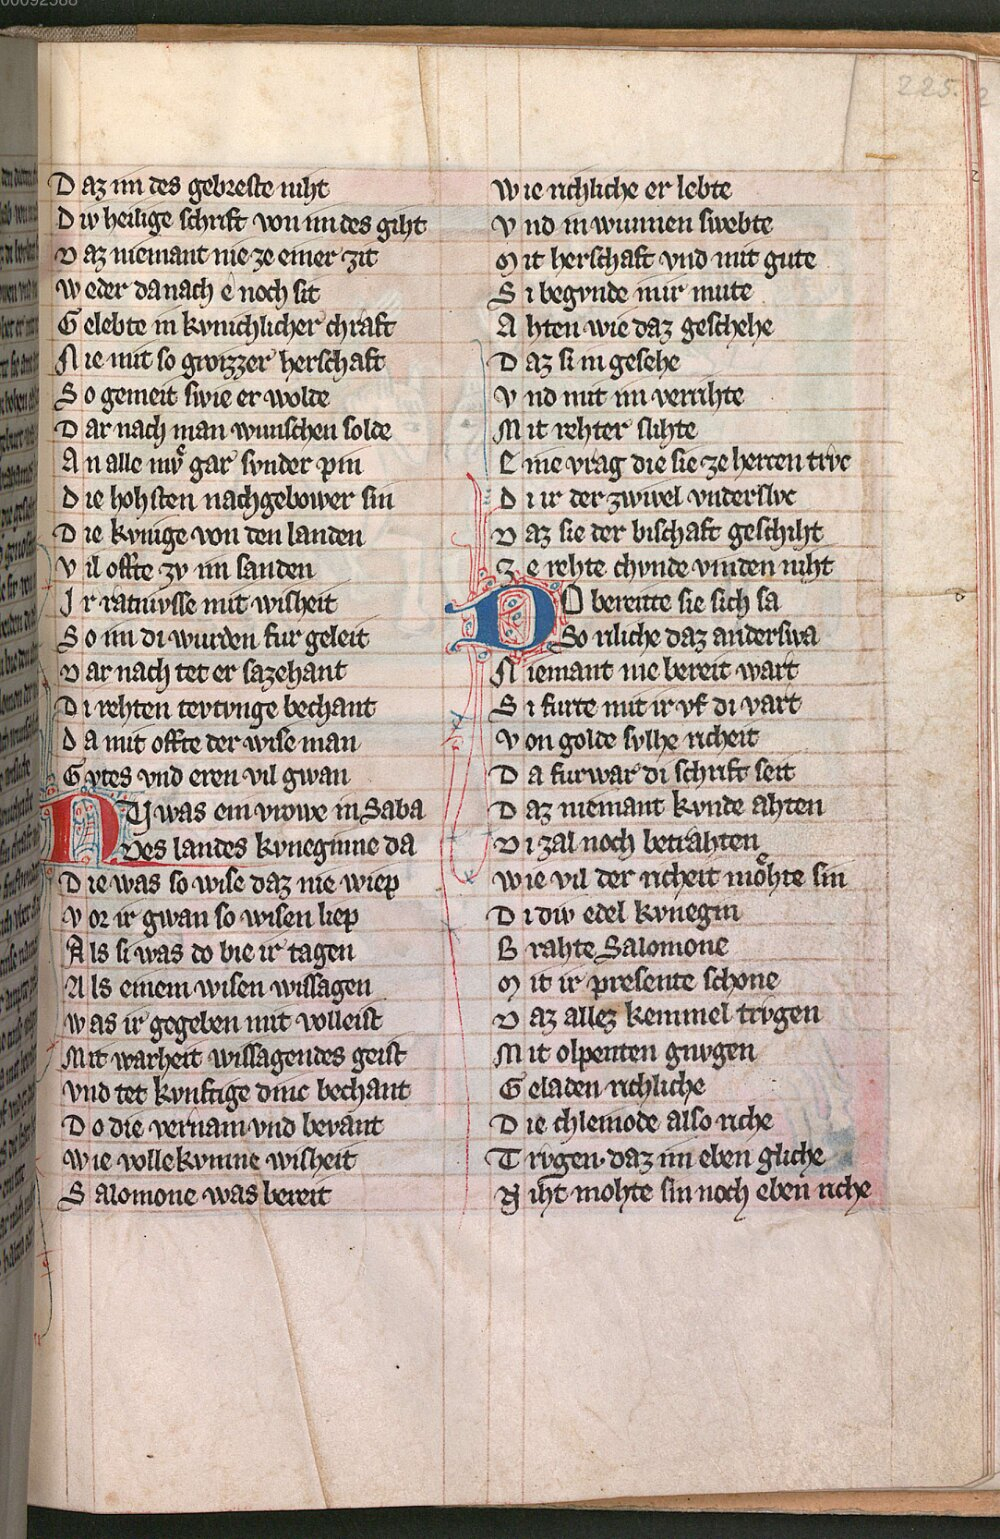 225.
Daz im des gebreste niht
Div heilige schrift von im des giht
Daz niemant nie ze einer zit
Weder da nach e noch sit
Gelebte in kvnichlicher chraft
Nie mit so grozzer herschaft
So gemeit swie er wolde
Dar nach man wunschen solde
An alle mv̊ gar svnder pin
Die hohsten nachgebower sin
Die kvnige von den landen
Vil offte zv im sanden
Ir ratnvsse mit wisheit
So im di wurden fur geleit
Dar nach tet er sazehant
Di rehten tevtvnge bechant
Da mit offte der wise man
Gvtes vnd eren vil gwan
NV was ein vrowe in Saba
Des landes kvneginne da
Die was so wise daz nie wiep
Vor ir gwan so wisen liep
Als si was do bie ir tagen
Als einem wisen wissagen
Was ir gegeben mit volleist
Mit warheit wissagendes geist
Vnd tet kvnftige dinc bechant
Do die vernam vnd bevant
Wie vollekvmne wisheit
Salomone was bereit
Wie richliche er lebte
Vnd in wunnen swebte
Mit herschaft vnd mit gute
Si begvnde mir mute
Ahten wie daz geschehe
Daz si in gesehe
Vnd mit im verrihte
Mit rehter slihte
Eine vrag die sie ze hercen trvc
Di ir der zwivel vnderslvc
Daz sie der bischaft geschiht
Ze rehte chvnde vinden niht
DO bereitte sie sich sa
So richliche daz anderswa
Niemant nie bereit wart
Si furte mit ir vf di vart
Von golde sylhe richeit
Da furwar di schrift seit
Daz niemant kvnde ahten
Di zal noch betrahten
Wie vil der richeit mo̊hte sin
Di div edel kvnegin
Brahte Salomone
Mit ir presente schone
Daz allez kemmel trvgen
Mit olpenten gnvgen
Geladen richliche
Die chleinode also riche
Trvgen daz im eben gliche
Niht mohte sin noch eben riche